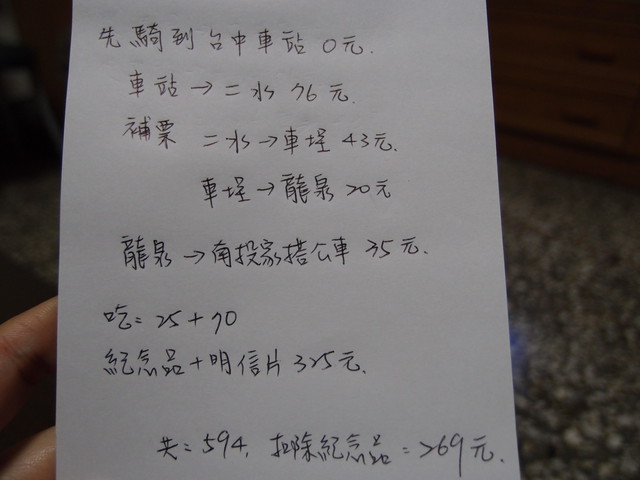 先騎到台中車站 0元.
車站→二水 76元.
補票 二水→車埕 43元.
車埕→龍泉 20元
龍泉→南投家搭公車 35元.
吃=25+70
紀念品+明信片 325元.
共=594, 扣除紀念品=269元.